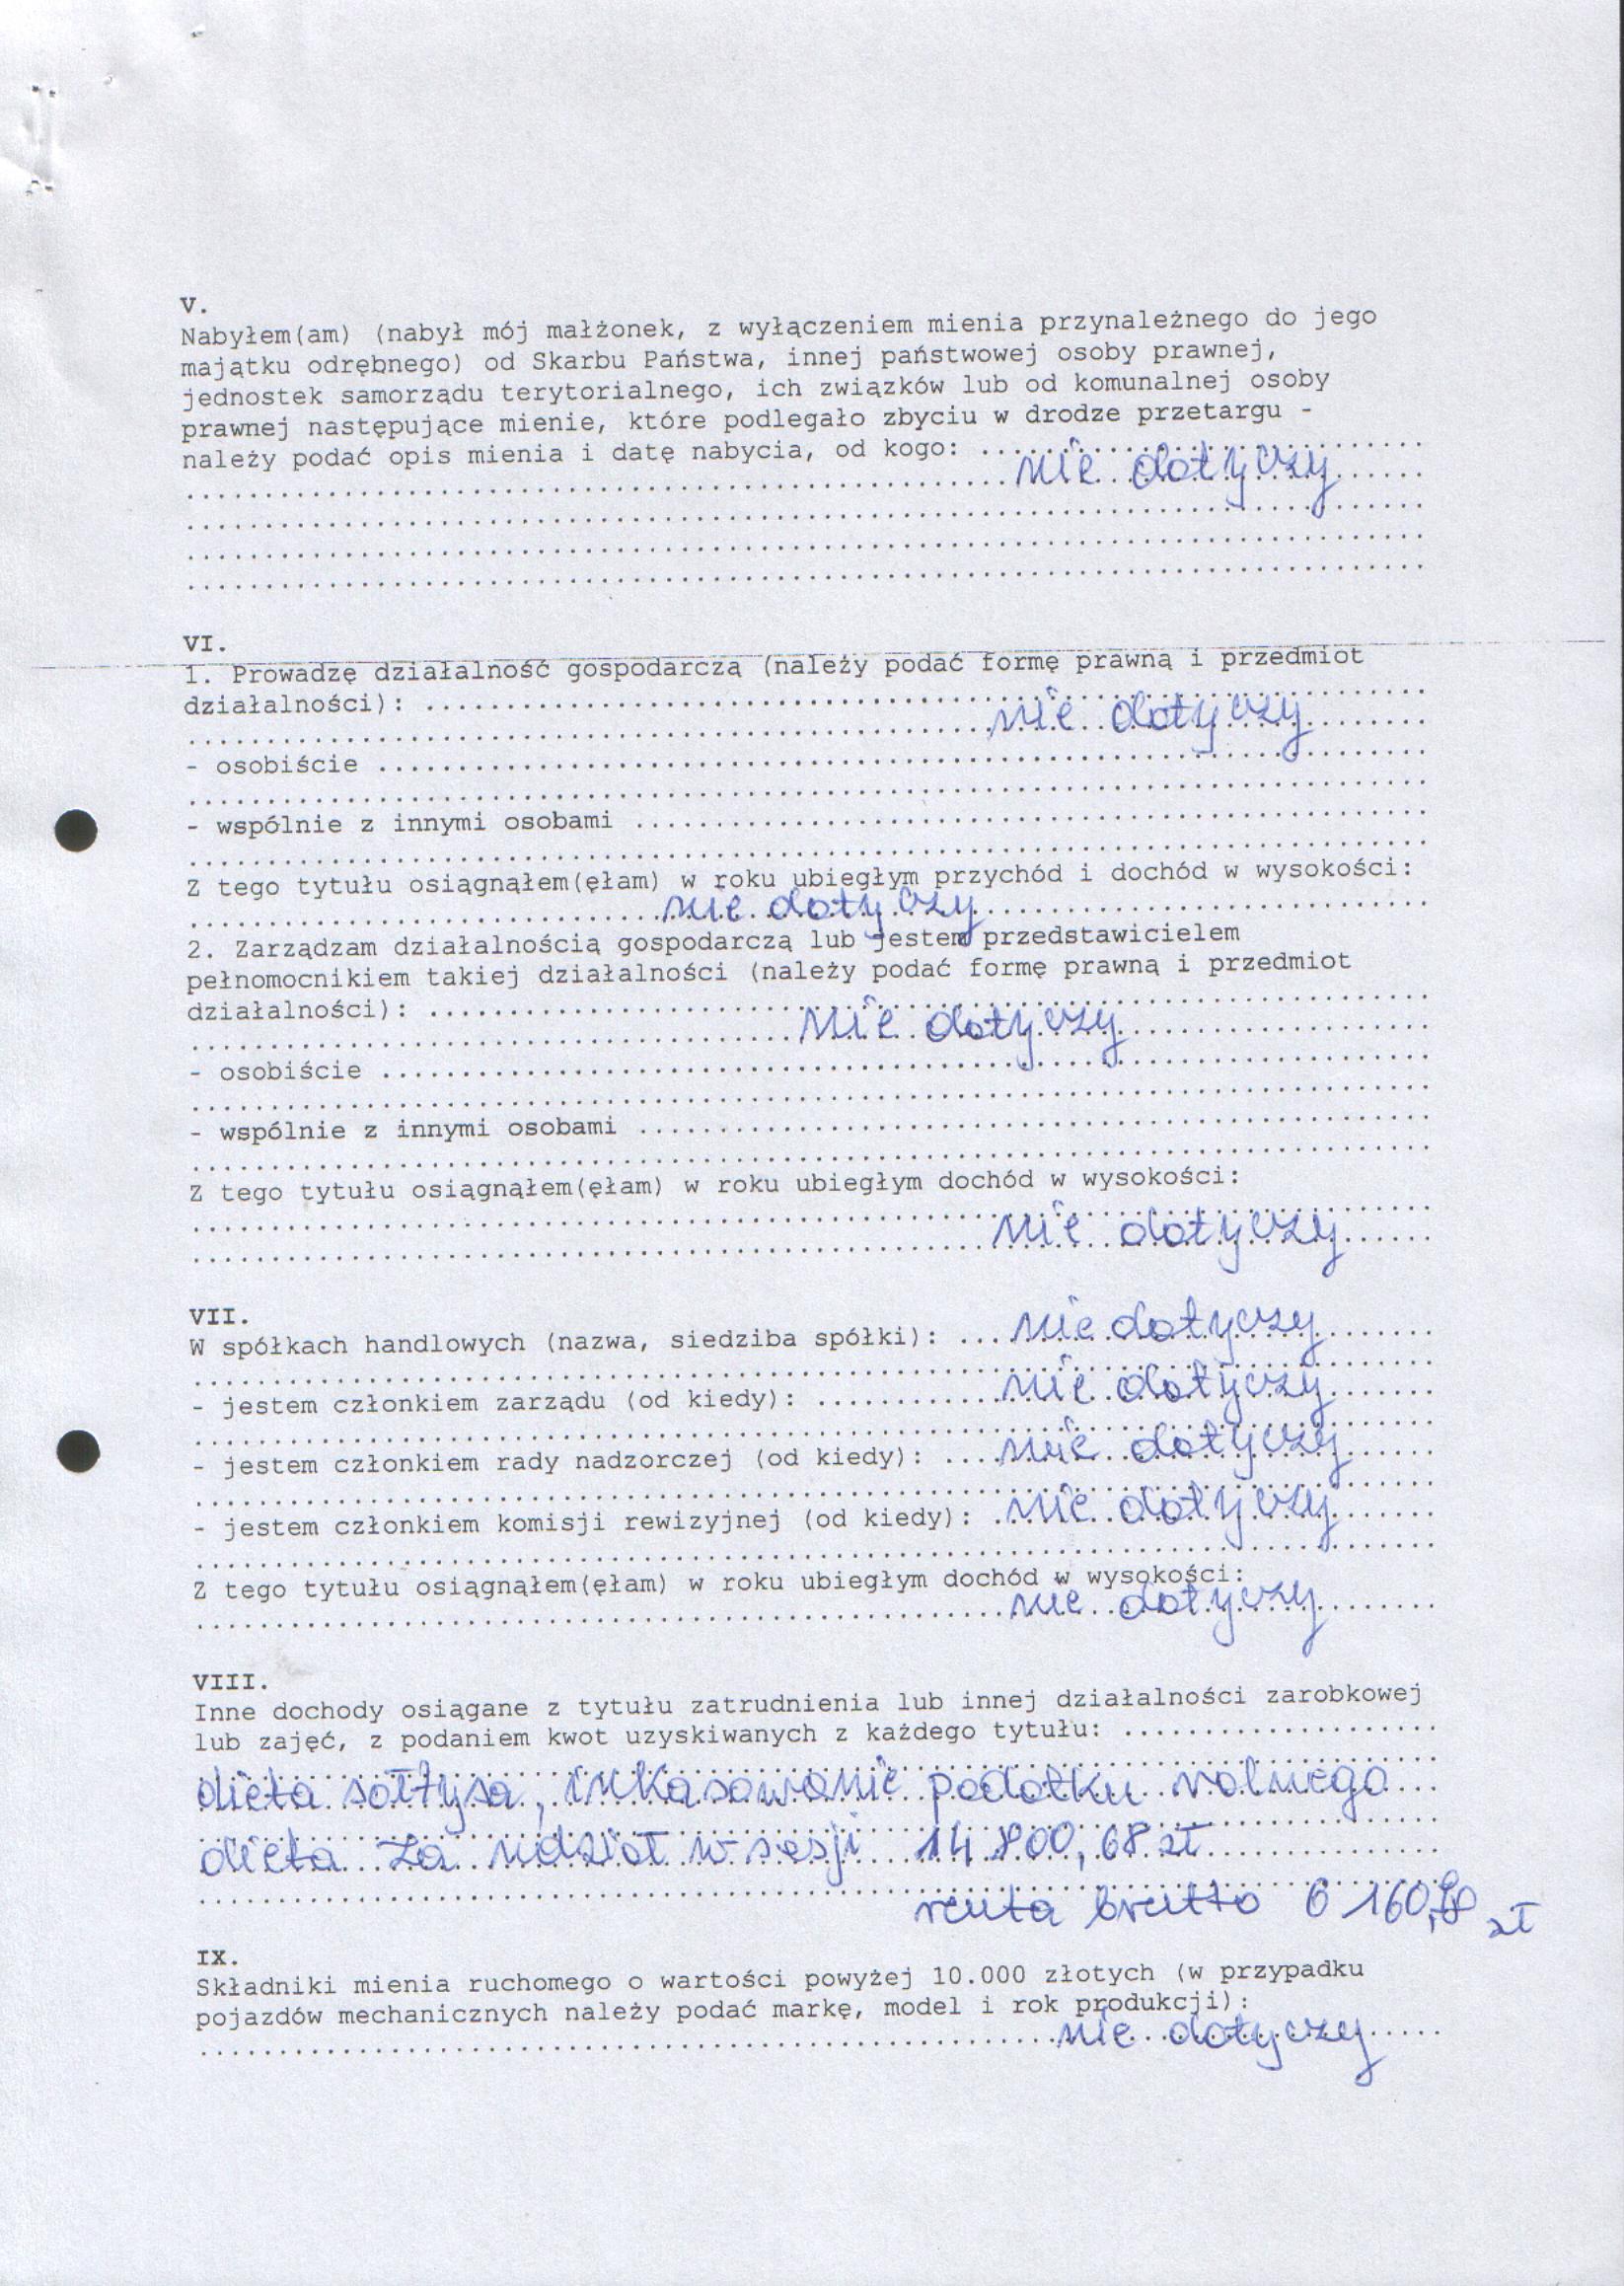 V.
Nabyłem(am) (nabył mój małżonek, z wyłączeniem mienia przynależnego do jego
majątku odrębnego) od Skarbu Państwa, innej państwowej osoby prawnej,
jednostek samorządu terytorialnego, ich związków lub od komunalnej osoby
prawnej następujące mienie, które podlegało zbyciu w drodze przetargu -
należy podać opis mienia i datę nabycia, od kogo:
nie dotyczy
VI.
1. Prowadzę działalność gospodarczą (należy podać formę prawną i przedmiot
działalności):
nie dotyczy
- osobiście
- wspólnie z innymi osobami
Z tego tytułu osiągnąłem(ęłam) w roku ubiegłym przychód i dochód w wysokości:
nie dotyczy
2. Zarządzam działalnością gospodarczą lub jestem przedstawicielem
pełnomocnikiem takiej działalności (należy podać formę prawną i przedmiot
działalności):
nie dotyczy
- osobiście
- wspólnie z innymi osobami
Z tego tytułu osiągnąłem(ęłam) w roku ubiegłym dochód w wysokości:
nie dotyczy
VII.
W spółkach handlowych (nazwa, siedziba spółki): nie dotyczy
- jestem członkiem zarządu (od kiedy): nie dotyczy
- jestem członkiem rady nadzorczej (od kiedy): nie dotyczy
- jestem członkiem komisji rewizyjnej (od kiedy): nie dotyczy
Z tego tytułu osiągnąłem(ęłam) w roku ubiegłym dochód w wysokości:
nie dotyczy
VIII.
Inne dochody osiągane z tytułu zatrudnienia lub innej działalności zarobkowej
lub zajęć, z podaniem kwot uzyskiwanych z każdego tytułu:
dieta sołtysa, inkasowanie podatku rolnego
dieta za udział w sesji 14 800,68 zł
renta brutto 6 160, zł
IX.
Składniki mienia ruchomego o wartości powyżej 10.000 złotych (w przypadku
pojazdów mechanicznych należy podać markę, model i rok produkcji):
nie dotyczy